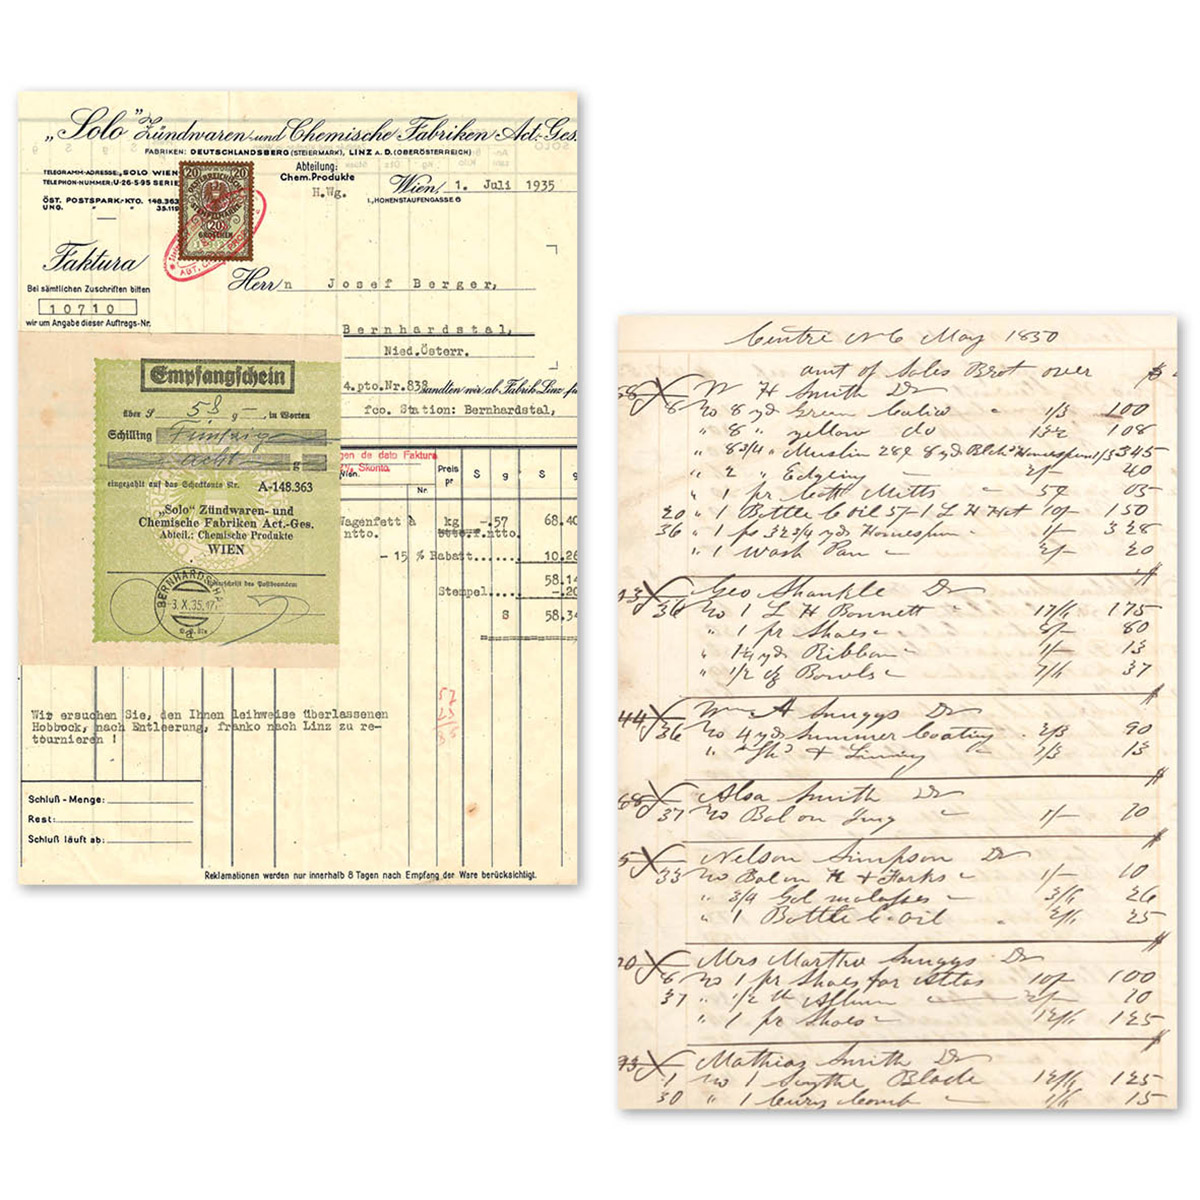 „Solo” Zündwaren und Chemische Fabriken Act.-Ges.
FABRIKEN: DEUTSCHLANDSBERG (STEIERMARK), LINZ A. D. (OBERÖSTERREICH)
TELEGRAMM-ADRESSE „SOLO WIEN
TELEPHON-NUMMER: U-26-5-95 SERIE
ÖST. POSTSPARK.-KTO. 148.363
UNG. " " 35.119
20 20
20
GROSCHEN
Abteilung:
Chem. Produkte
H.Wg.
Wien, 1. Juli 1935
I., HOHENSTAUFENGASSE 6
Faktura
Bei sämtlichen Zuschriften bitten
10710
wir um Angabe dieser Auftrags-Nr.
Herrn Josef Berger,
Bernhardstal,
Nied.Österr.
4.pto.Nr.838 sandten wir ab Fabrik Linz fü
fco. Station: Bernhardstal,
Empfangschein
über S 58 g - , in Worten
Schilling Fünfzig
acht g
eingezahlt auf das Scheckkonto Nr. A-148.363
„Solo" Zündwaren- und
Chemische Fabriken Act.-Ges.
Abteil.: Chemische Produkte
WIEN
Unterschrift des Postbeamten
BERNHARDSTHAL
-3.X.35.17
gen de dato Faktura
Skonto.
Nr.
Preis
pr
S g S g
Wagenfett à kg -.57 68.40
ntto. btto.f.ntto.
- 15 % Rabatt..... 10.26
58.14
Stempel..... -.20
S 58.34
Wir ersuchen Sie, den Ihnen leihweise überlassenen
Hobbock, nach Entleerung, franko nach Linz zu re-
tournieren !
Schluß - Menge:
Rest:
Schluß läuft ab:
Reklamationen werden nur innerhalb 8 Tagen nach Empfang der Ware berücksichtigt.
Centre N C May 1850
amt of Sales Brot over $
58 W H Smith Dr
8 To 8 yd Green Calico 1/3 100
" 8 " yellow do 13½ 108
" 8 3/4 " Muslin 28¢ 8 yd Blch Homespun 1/3 345
" 2 " Edging 2/- 40
" 1 pr Cott Mitts 5¢ 05
20 " 1 Bottle C oil 5/- 1 L H Hat 10/- 150
36 " 1 ps 32 3/4 yds Homespun 1/- 328
" 1 Wash Pan 2/- 20
13 Geo Shankle Dr $
36 To 1 L H Bonnett 17/6 175
" 1 pr Shoes 8/- 80
" 1¼ yds Ribbon 1/- 13
" 1/2 dz Bowls 7/6 37
44 Wm A Suggs Dr $
36 To 4 yds Summer Coating 2/3 90
" Thd & Lining 1/3 13
68 Alsa Smith Dr $
37 To Bal on Jug 1/- 10
5 Nelson Simpson Dr $
33 To Bal on K & Forks 1/- 10
" 3/4 Gal molasses 3/6 26
" 1 Bottle C oil 2/6 25
70 Mrs Martha Suggs Dr $
8 To 1 pr Shoes for Atlas 10/- 100
37 " 1/2 lb Allum 2/- 10
" 1 pr Shoes 12/6 125
73 Mathias Smith Dr $
1 To 1 Scythe Blade 12/6 125
30 " 1 Curry Comb 1/6 15